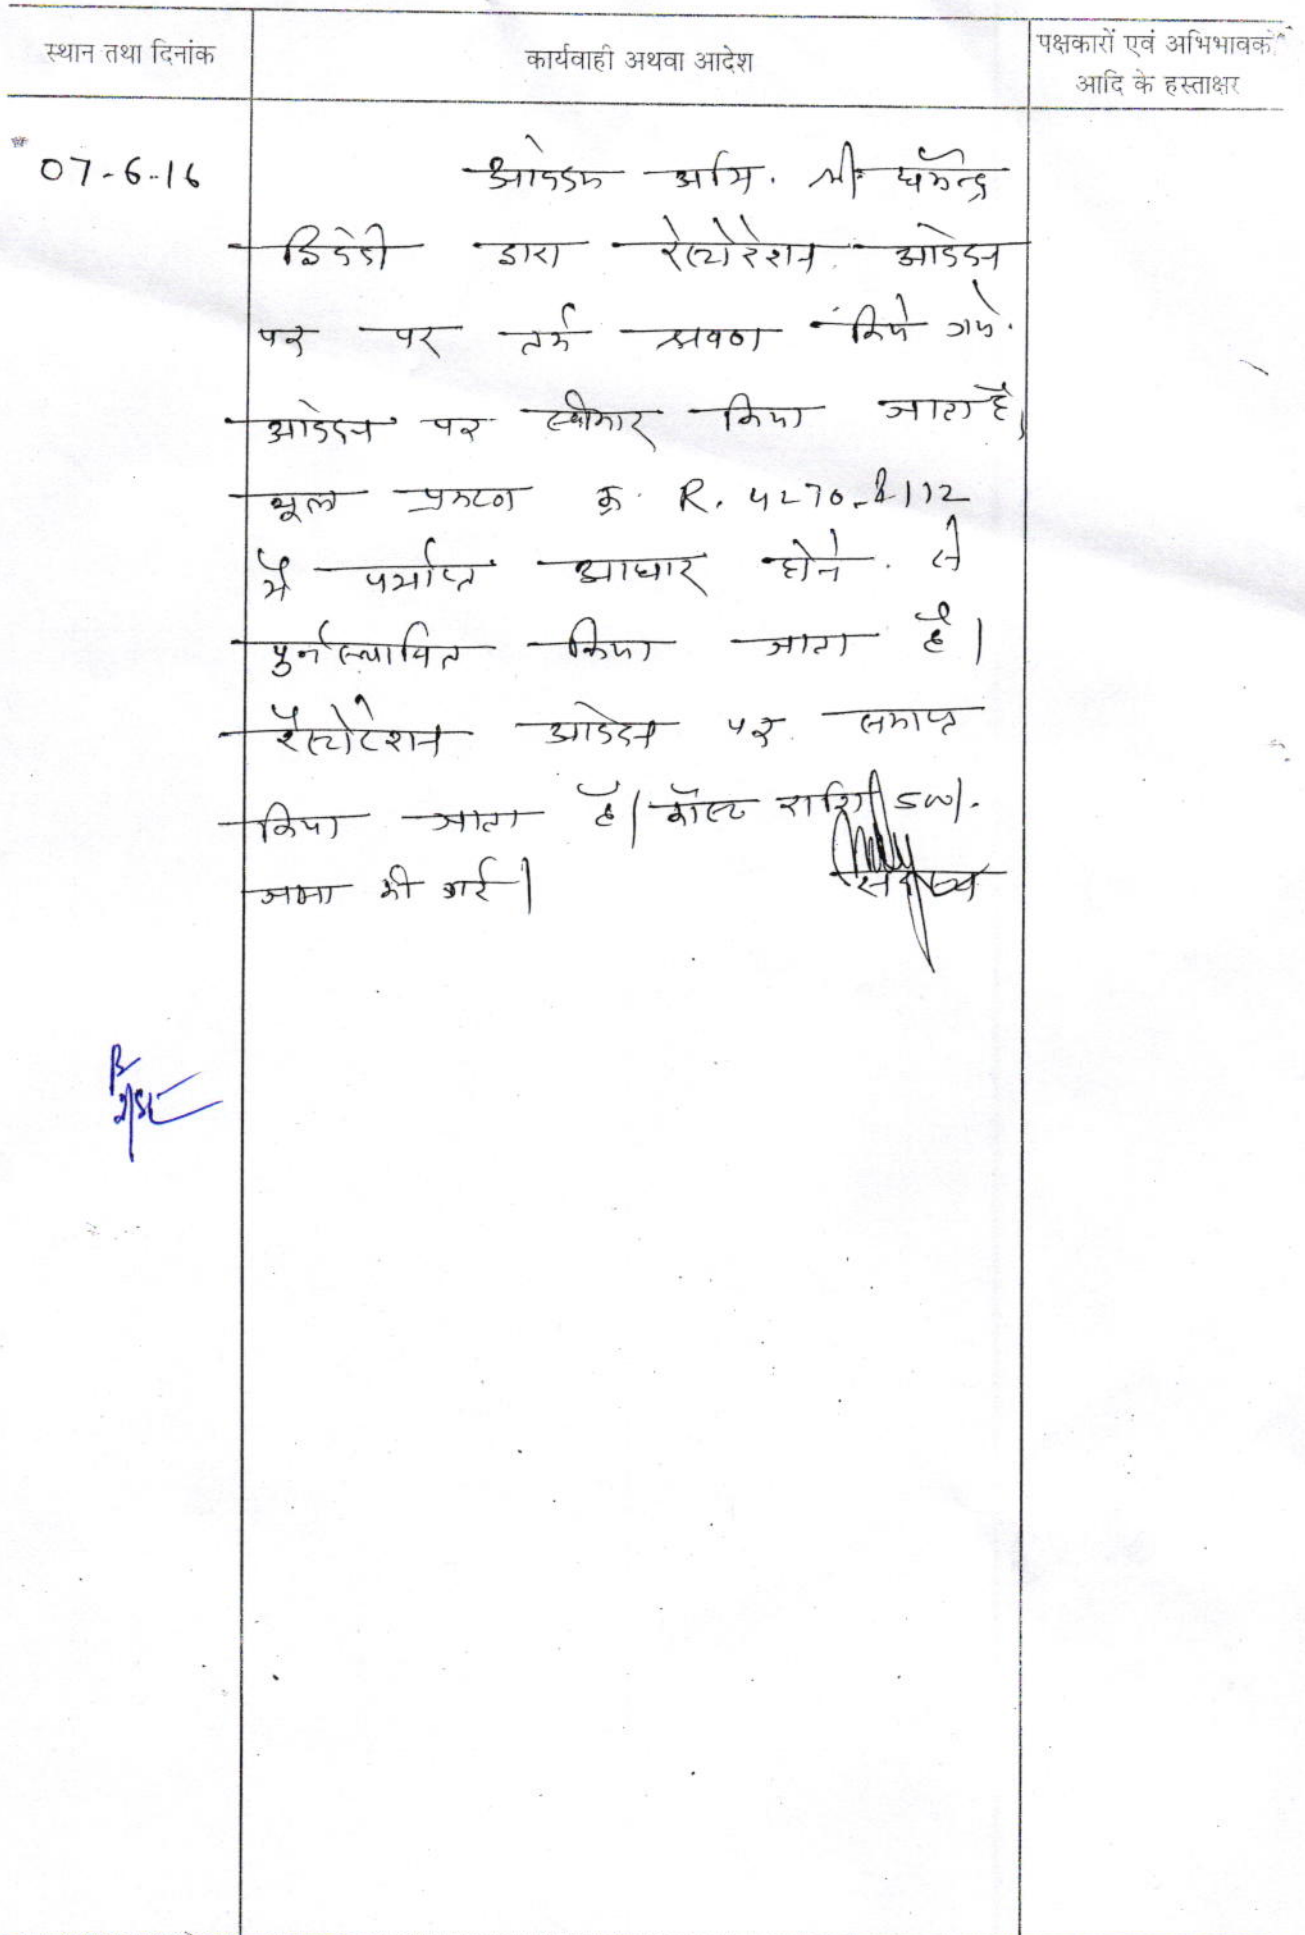 स्थान तथा दिनांक
कार्यवाही अथवा आदेश
पक्षकारों एवं अभिभावकों
आदि के हस्ताक्षर
07-6-16
आवेदक अभि. श्री धर्मेन्द्र
द्विवेदी द्वारा रेस्टोरेशन आवेदन
पत्र पर तर्क श्रवण किये गये.
आवेदन पत्र स्वीकार किया जाता है,
मूल प्रकरण क्र. R. 4270-
में पर्याप्त आधार होने से
पुर्नस्थापित किया जाता है।
रेस्टोरेशन आवेदन पत्र समाप्त
किया जाता है। कॉस्ट राशि 500/-
जमा की गई।
सदस्य